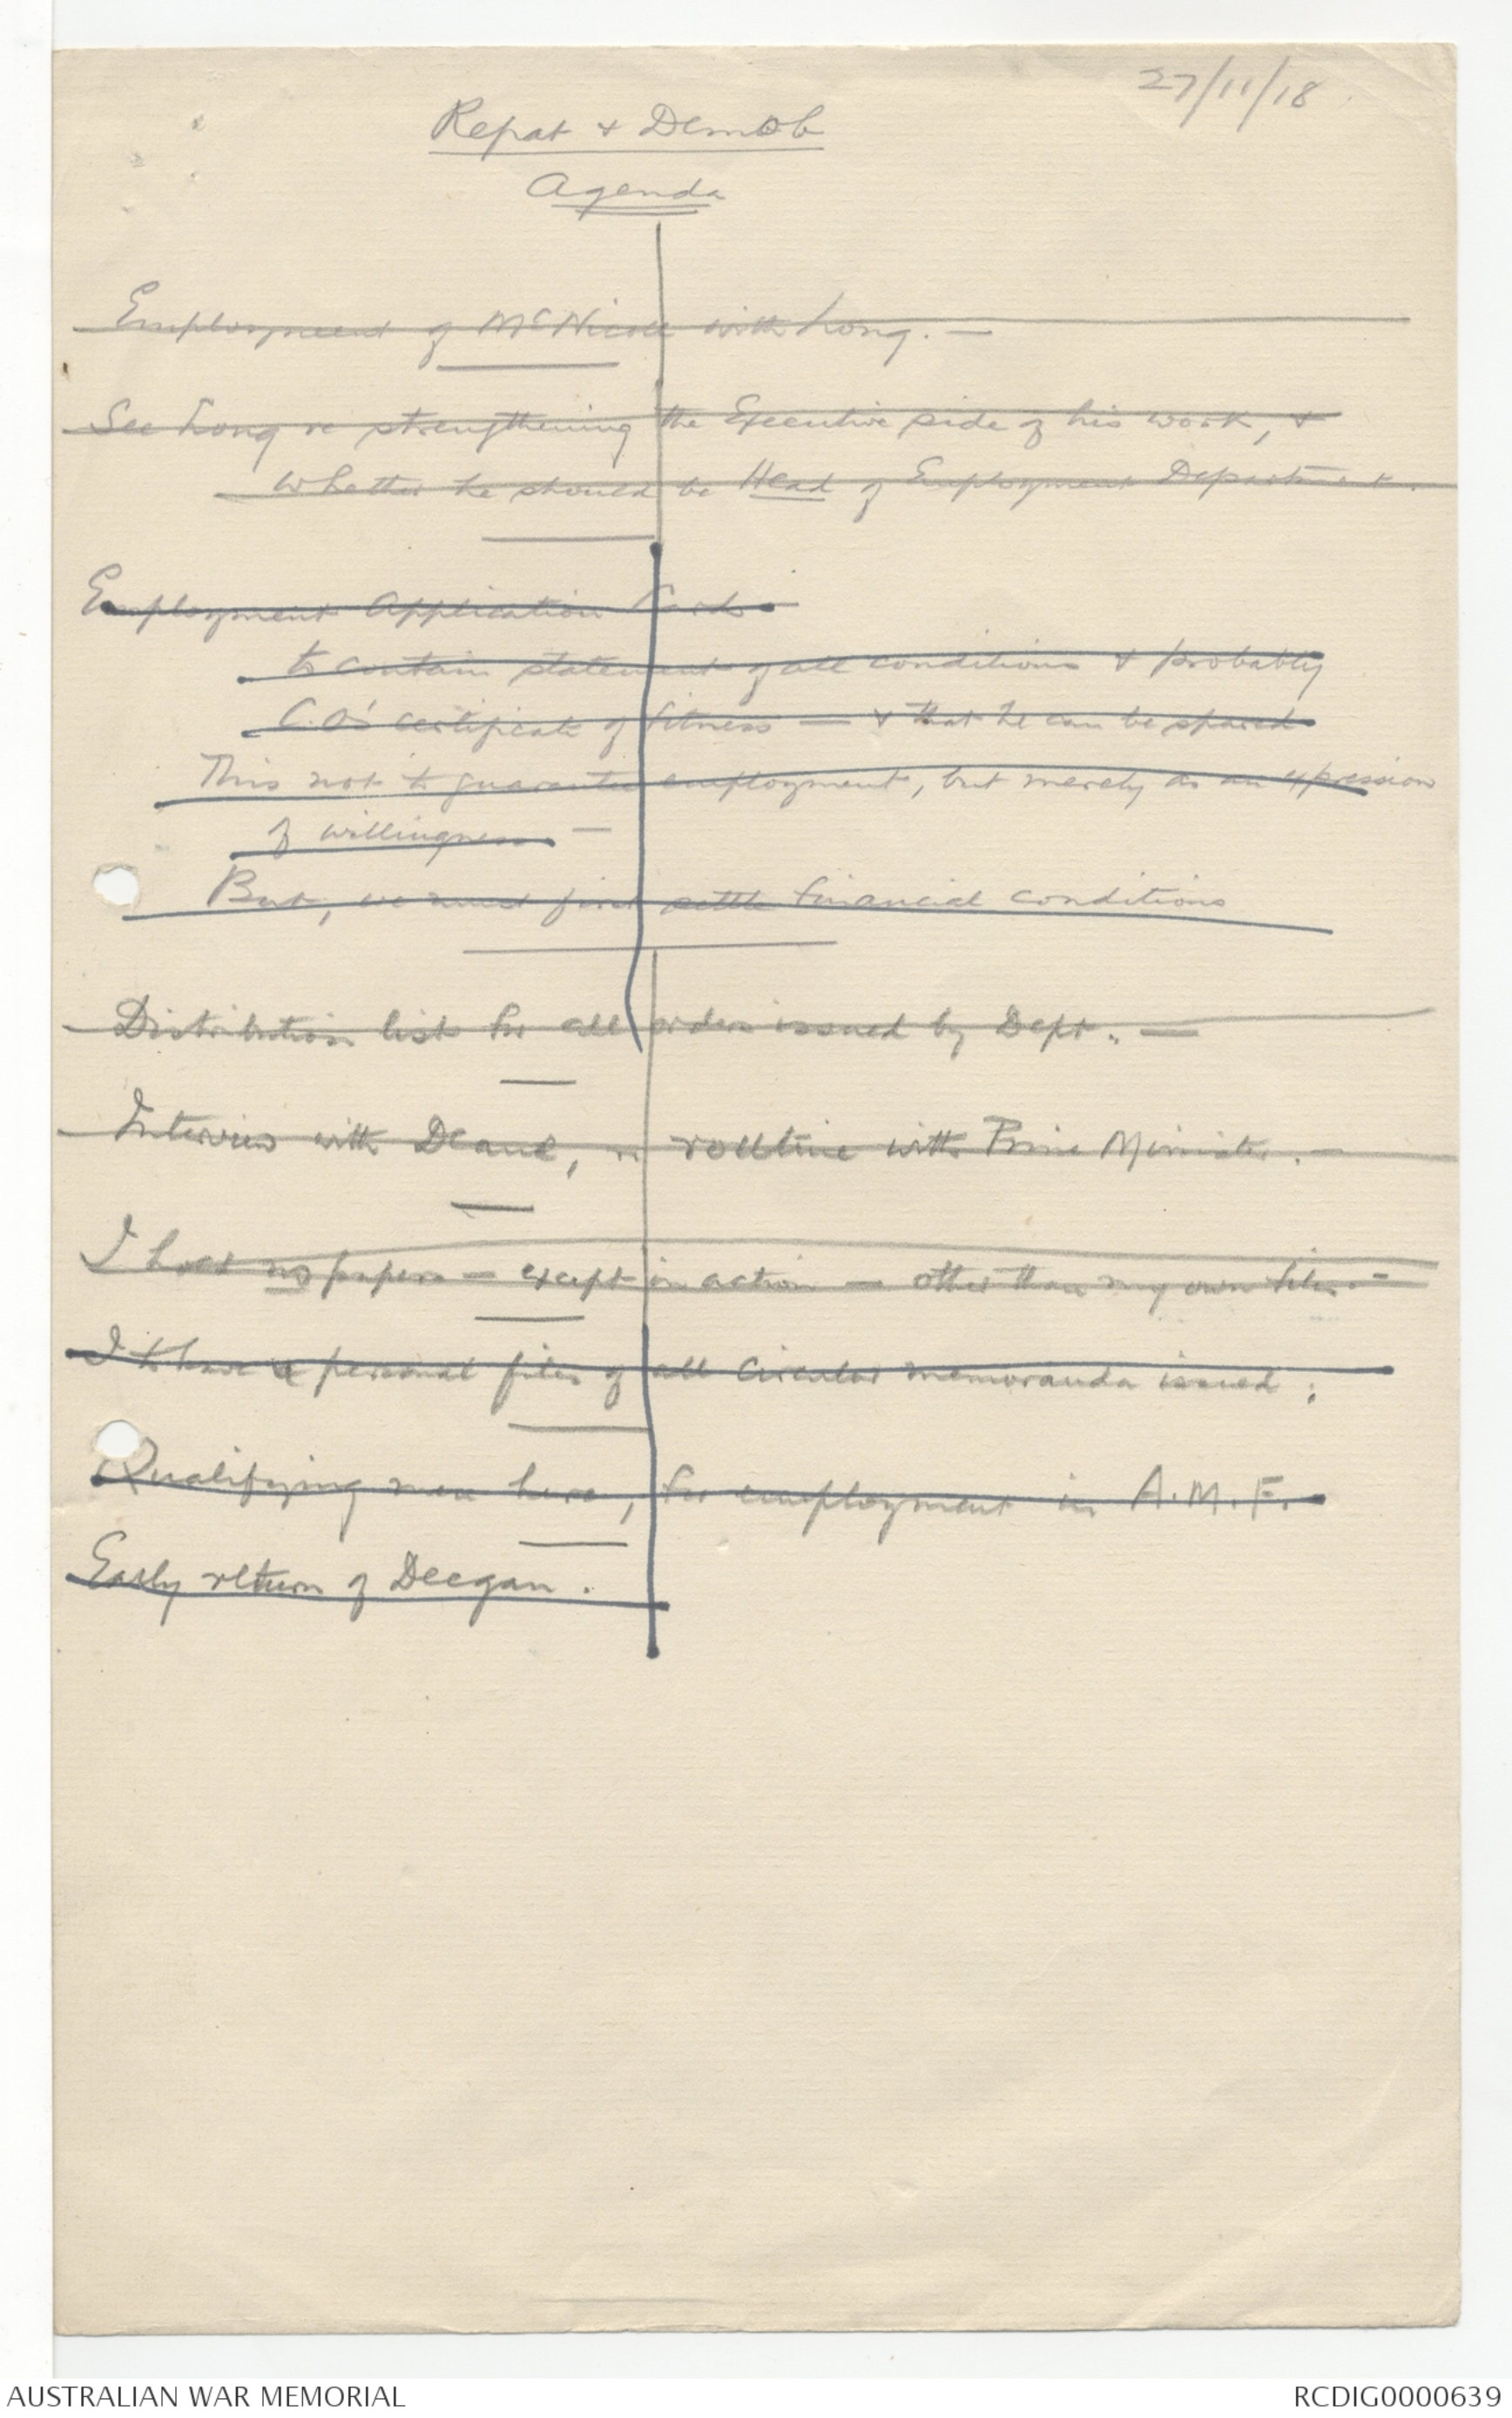 27/11/18
Repat & Demob
Agenda
Employment of McNicoll with Long. —
See Long re strengthening the Executive side of his work, &
whether he should be Head of Employment Department.
Employment Application Cards
to contain statement of all conditions & probably
C.O's certificate of fitness — & that he can be spared
This not to guarantee employment, but merely as an expression
of willingness —
But, we must first settle financial conditions
Distribution list for all orders issued by Dept. —
Interview with Deane, re routine with Prime Minister. —
I hold no papers — except in action — other than my own files. —
I to have a personal file of all circular memoranda issued.
Qualifying men here, for employment in A.M.F.
Early return of Deegan.
AUSTRALIAN WAR MEMORIAL
RCDIG0000639